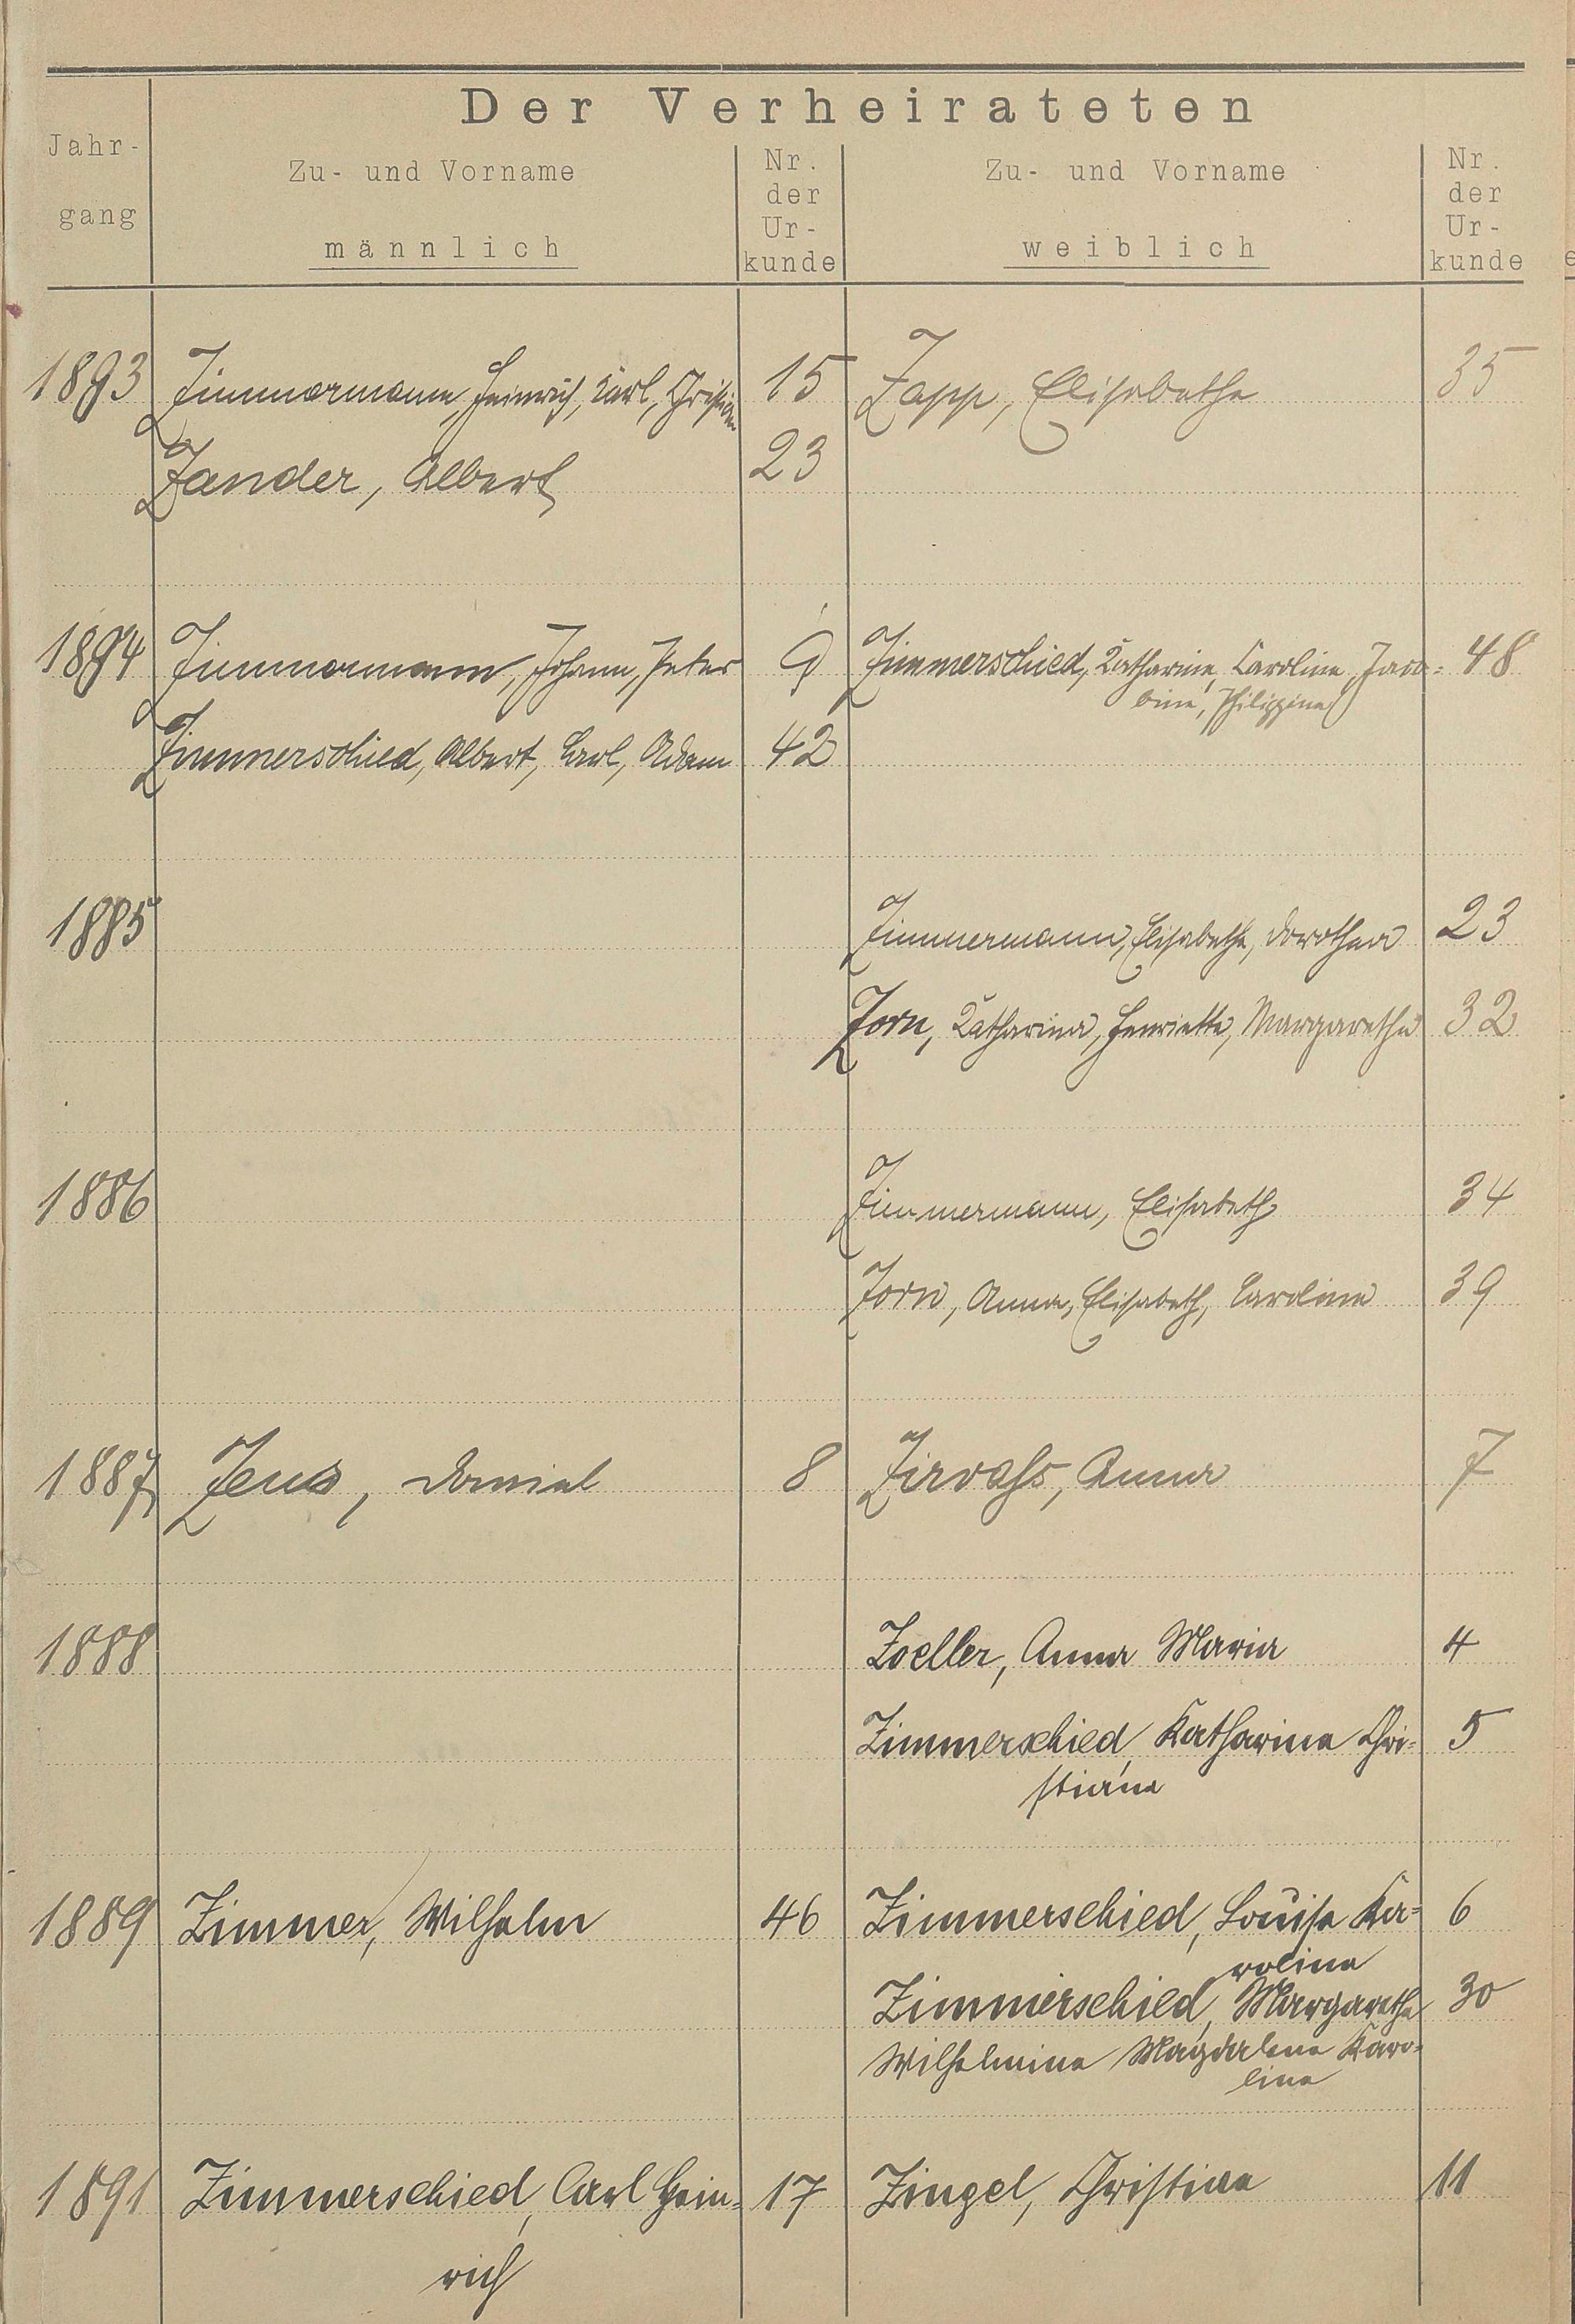 Der Verheirateten
Jahr-
gang
Zu- und Vorname
männlich
Nr.
der
Ur-
kunde
Zu- und Vorname
weiblich
Nr.
der
Ur-
kunde
1893 Zimmermann, Heinrich, Karl, Christian 15 Zapp, Elisabetha 35
Zander, Albert 23
1894 Zimmermann, Johann, Peter 9 Zimmerschied, Katharine, Caroline, Jaco= 48
bine, Philippine
Zimmerschied, Albert, Carl, Adam 42
1885 Zimmermann, Elisabetha, Dorothea 23
Zorn, Katharina, Henriette, Margaretha 32
1886 Zimmermann, Elisabeth 34
Zorn, Anna, Elisabeth, Caroline 39
1887 Zeus, Daniel 8 Zirvass, Anna 7
1888 Zoeller, Anna Maria 4
Zimmerschied, Katharina Chri= 5
stiane
1889 Zimmer, Wilhelm 46 Zimmerschied, Louise Ka= 6
roline
Zimmerschied, Margarethe 30
Wilhelmine Magdalena Karo=
line
1891 Zimmerschied, Carl Hein= 17 Zingel, Christine 11
rich